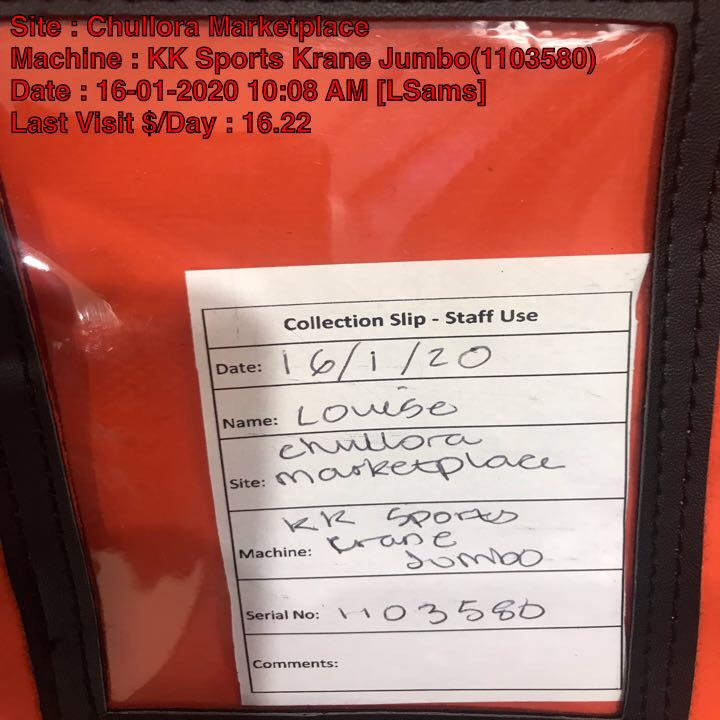 Site : Chullora Marketplace
Machine : KK Sports Krane Jumbo(1103580)
Date : 16-01-2020 10:08 AM [LSams]
Last Visit $/Day : 16.22
Collection Slip - Staff Use
Date: 16/1/20
Name: Louise
chullora
Site: marketplace
KK Sports
Machine: Krane
Jumbo
Serial No: 1103580
Comments: